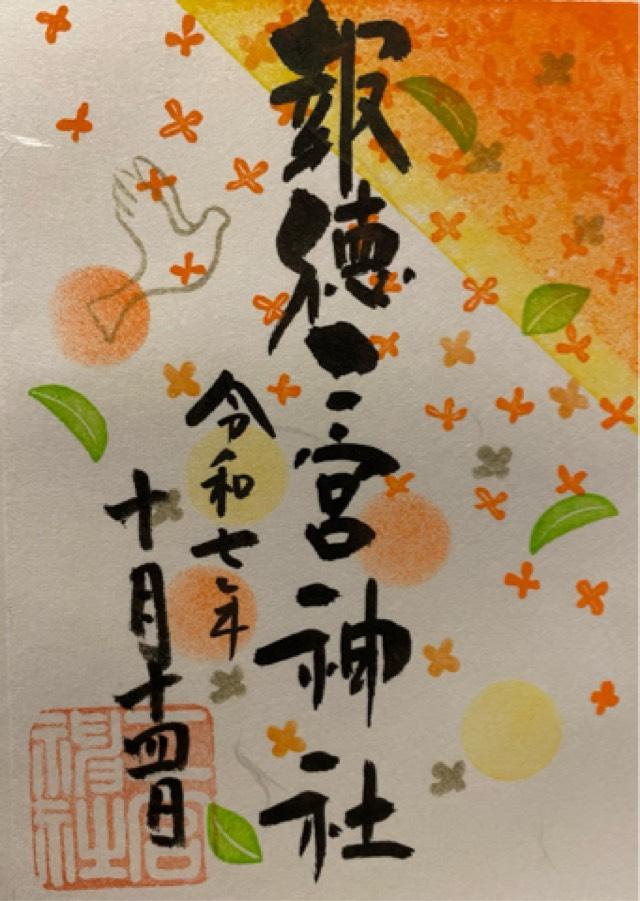 報徳二宮神社
令和七年
十月十四日
二宮
神社